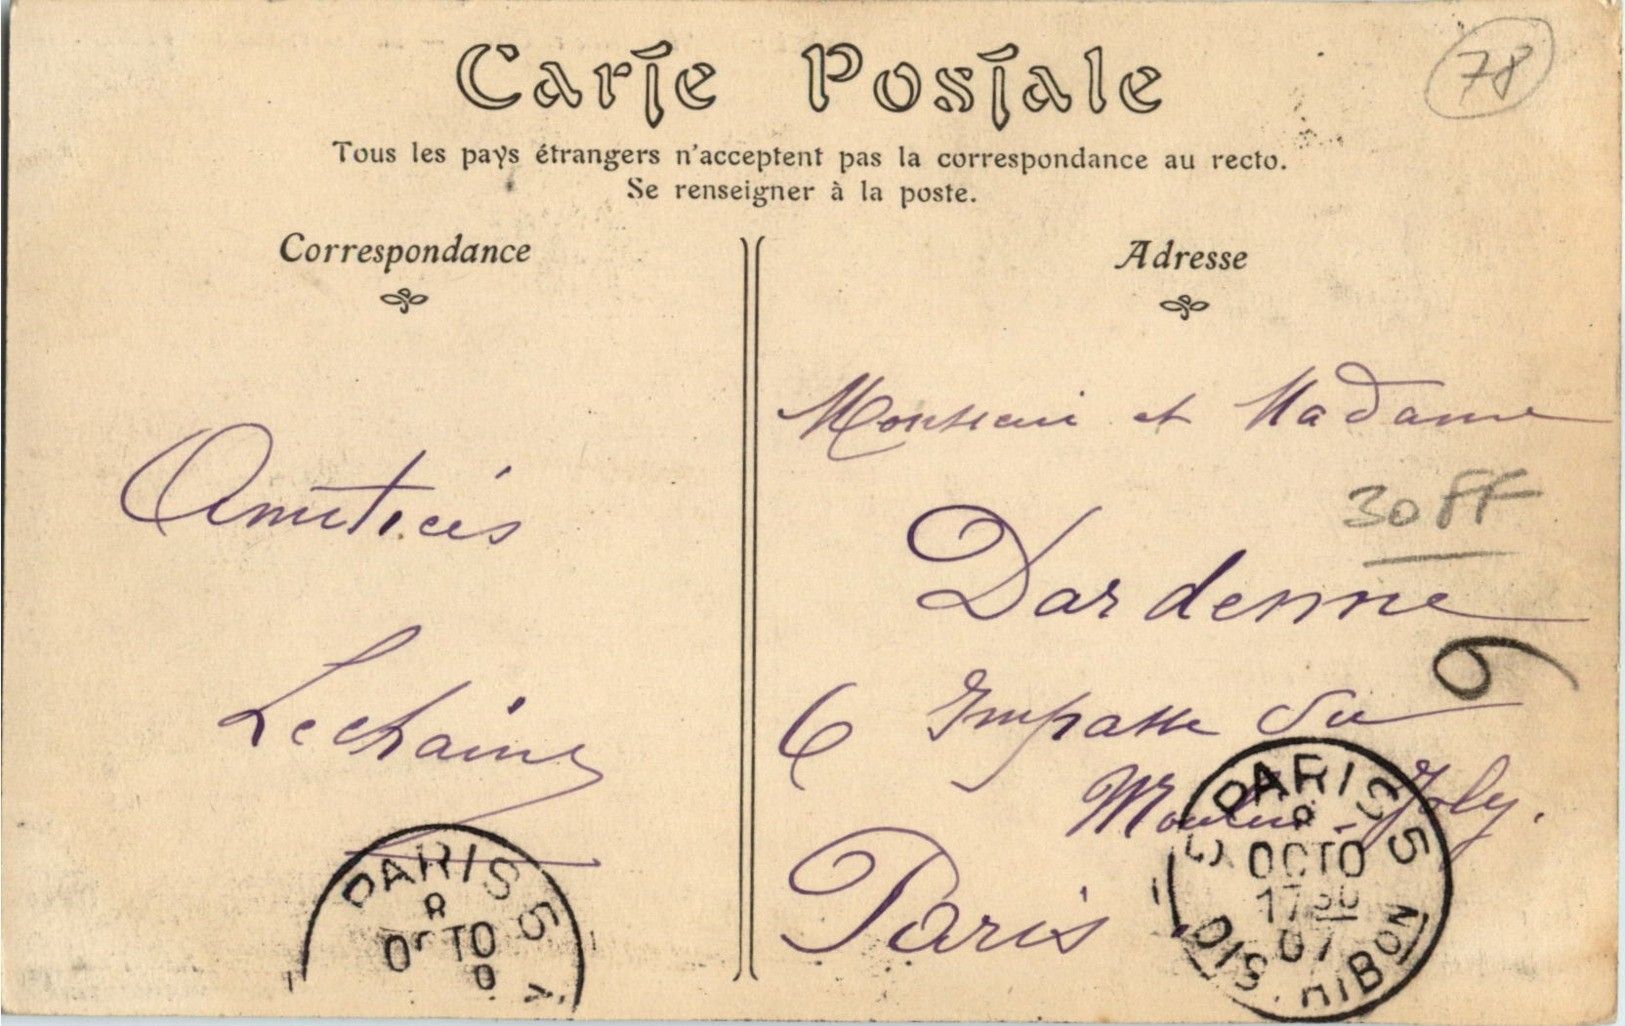 Carte Postale
78
Tous les pays étrangers n'acceptent pas la correspondance au recto.
Se renseigner à la poste.
Correspondance
Adresse
Amitiés
Monsieur et Madame
30 FF
Dardenne
6 Impasse du
Moulin Joly.
Paris
6
PARIS 5
8
OCTO
17 30
07
DISTRIBON
PARIS 5
8
OCTO
0